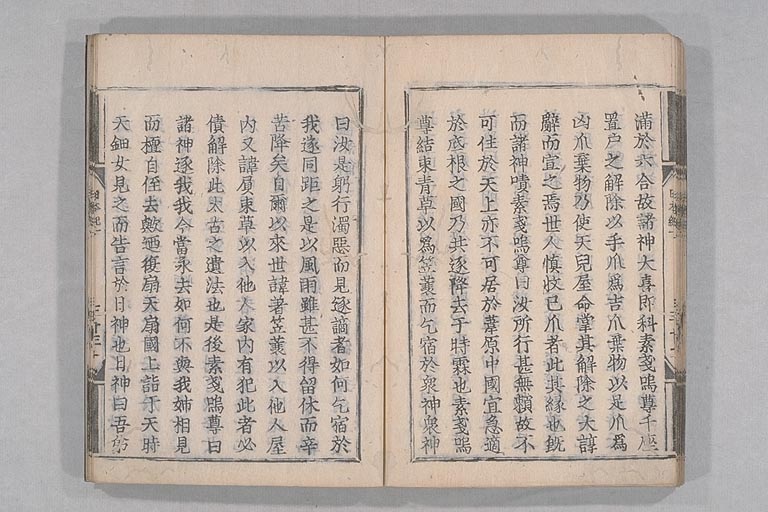 滿於六合故諸神大喜即科素戔嗚尊千座
置戶之解除以手爪爲吉爪棄物以足爪爲
凶爪棄物乃使天兒屋命掌其解除之太諄
辭而宣之焉世人愼收已爪者此其緣也旣
而諸神嘖素戔嗚尊曰汝所行甚無賴故不
可住於天上亦不可居於葦原中國宜急適
於底根之國乃共逐降去于時霖也素戔嗚
尊結束青草以爲笠蓑而乞宿於衆神衆神
曰汝是躬行濁惡而見逐謫者如何乞宿於
我遂同距之是以風雨雖甚不得留休而辛
苦降矣自爾以來世諱著笠蓑以入他人屋
內又諱負束草以入他人家內有犯此者必
債解除此太古之遺法也是後素戔嗚尊曰
諸神逐我我今當永去如何不與我姉相見
而擅自徑去歟廼復扇天扇國上詣于天時
天鈿女見之而告言於日神也日神曰吾弟